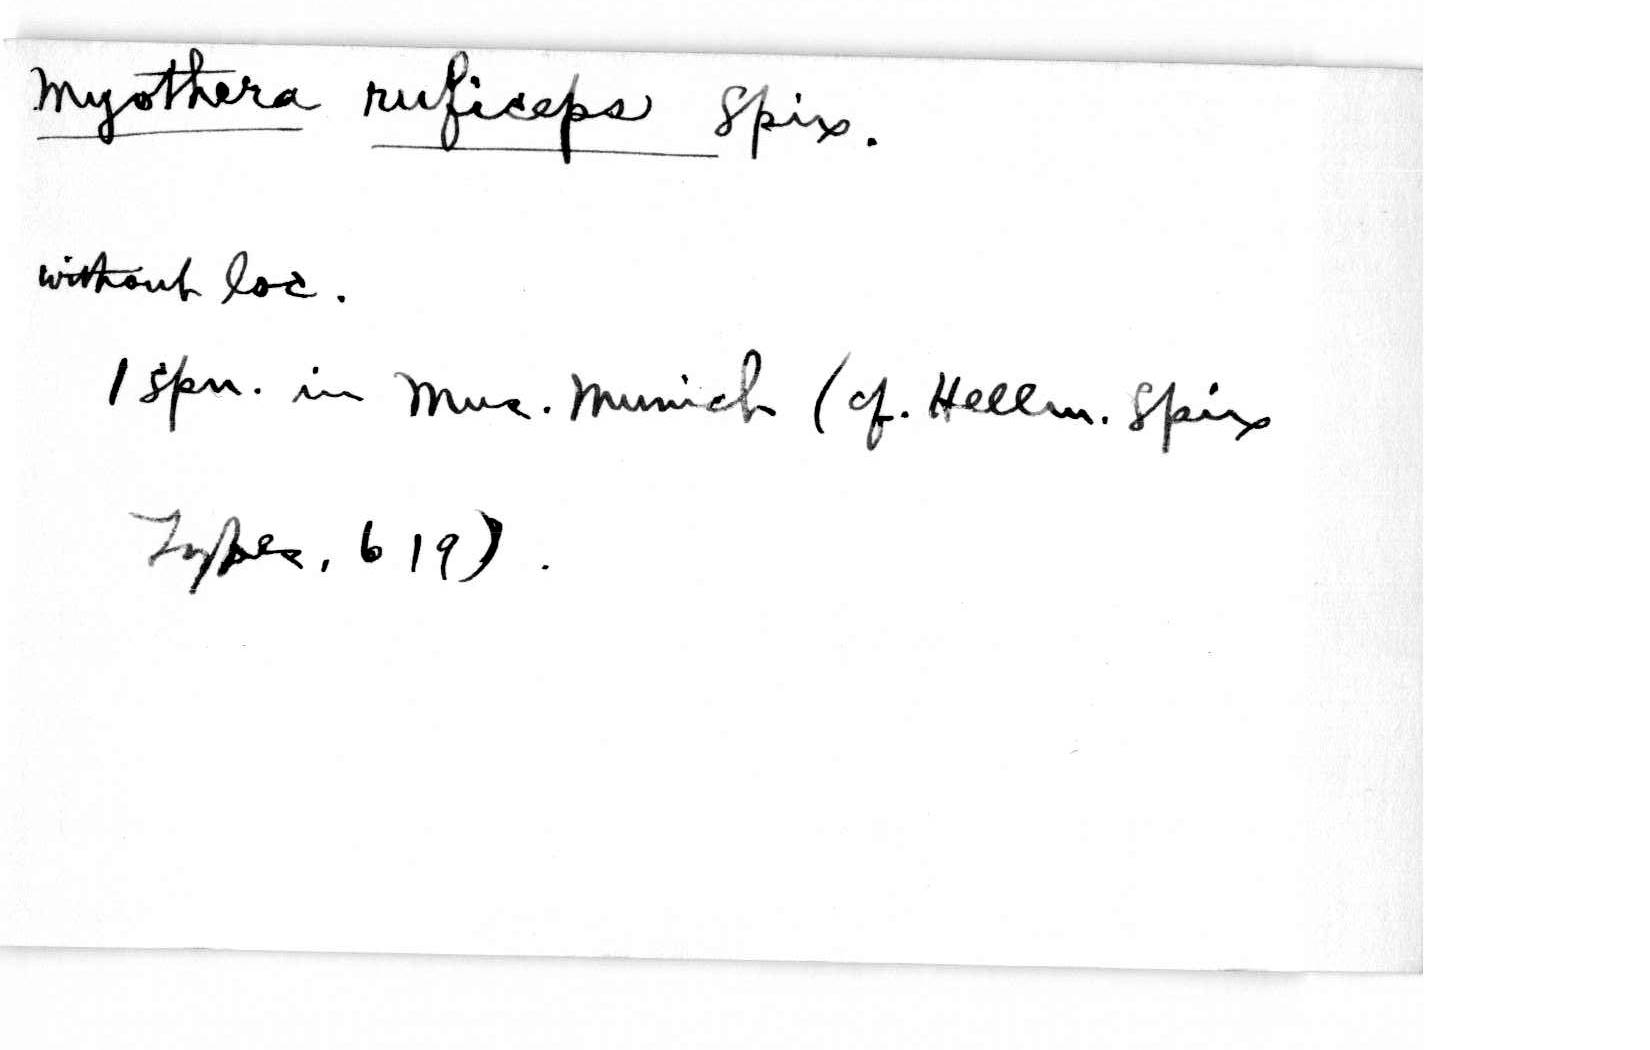 Myothera ruficeps Spix.
without loc.
1 spn. in Mus. Munich (cf. Hellm. Spix
Types, 619).